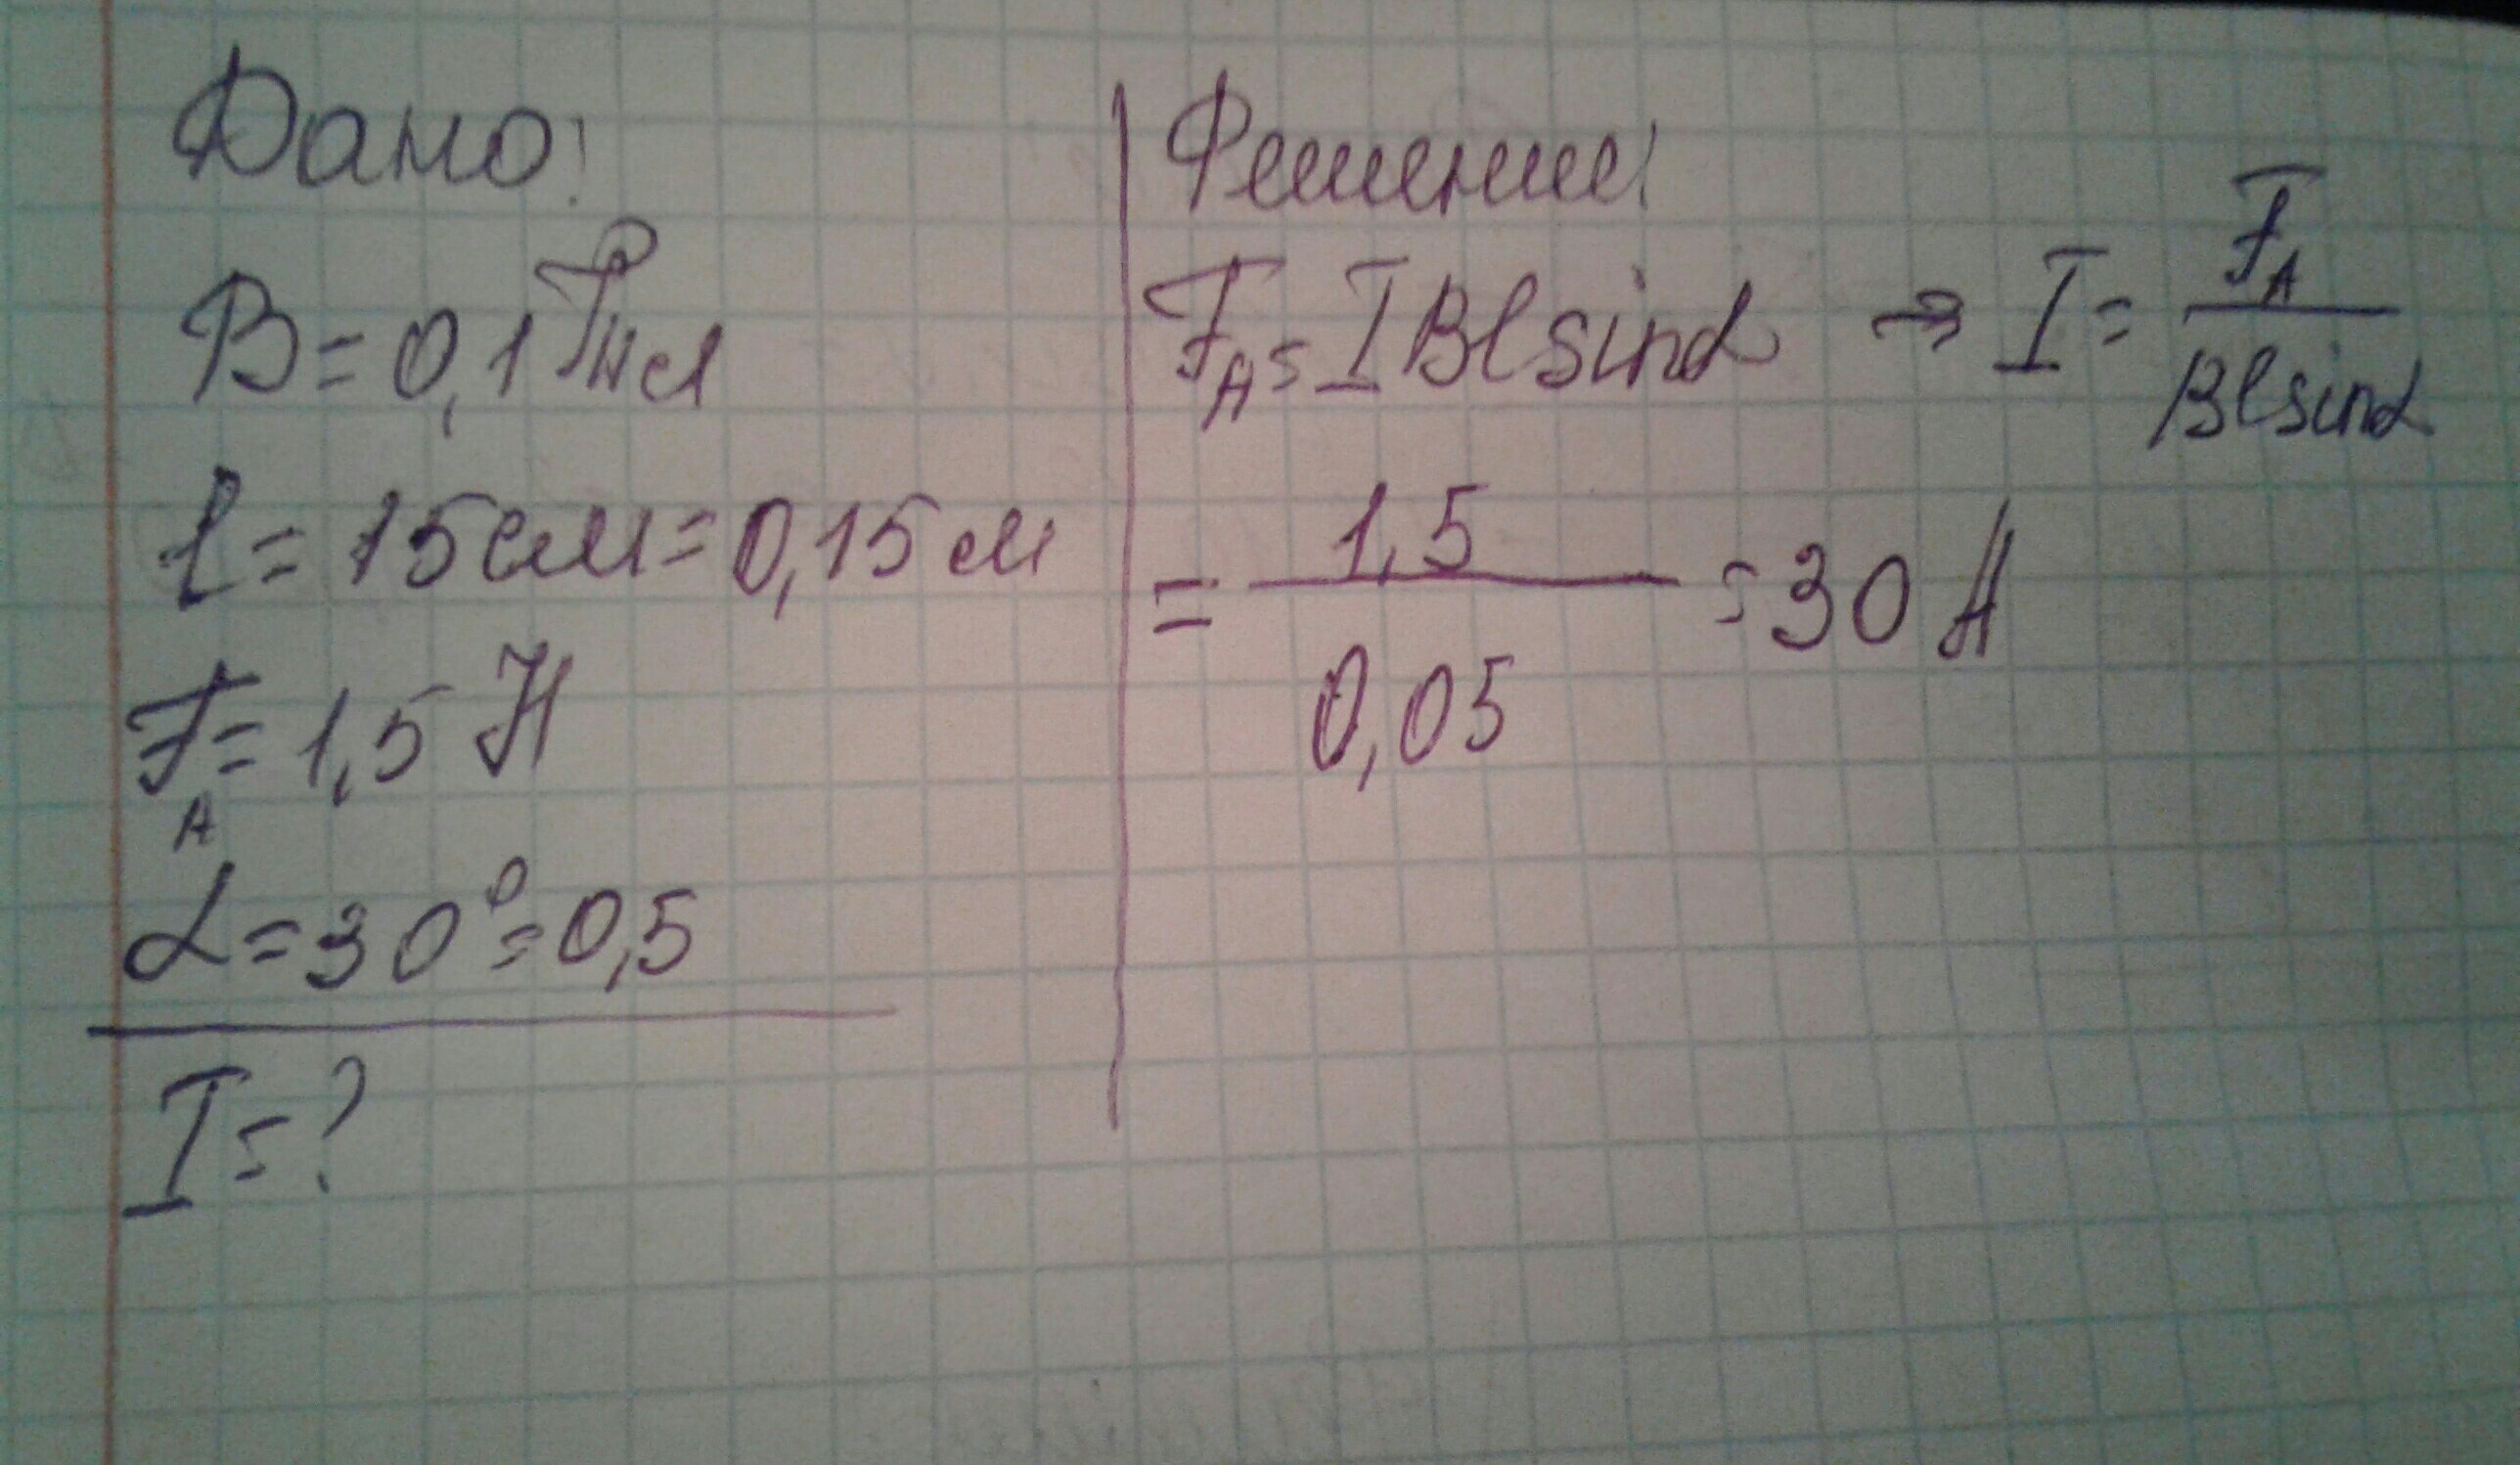 Дано:
B = 0,1 Тл
l = 15 см = 0,15 м
F_A = 1,5 Н
α = 30° = 0,5
I = ?
Решение:
F_A = I B l sin α → I = F_A / B l sin α
= 1,5 / 0,05 = 30 А